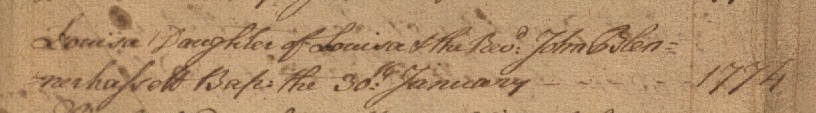 Louisa Daughter of Louisa & the Revd. John Blen=
=nerhassett Bap: the 30th. January - - - - 1774